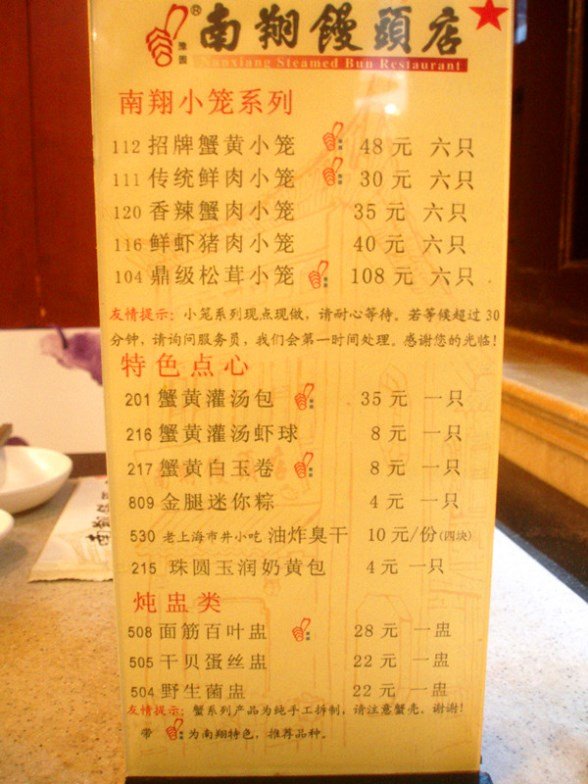 豫园
®南翔饅頭店
Nanxiang Steamed Bun Restaurant
南翔小笼系列
112 招牌蟹黄小笼 48 元 六只
111 传统鲜肉小笼 30 元 六只
120 香辣蟹肉小笼 35 元 六只
116 鲜虾猪肉小笼 40 元 六只
104 鼎级松茸小笼 108 元 六只
友情提示：小笼系列现点现做，请耐心等待。若等候超过 30
分钟，请询问服务员，我们会第一时间处理。感谢您的光临！
特色点心
201 蟹黄灌汤包 35 元 一只
216 蟹黄灌汤虾球 8 元 一只
217 蟹黄白玉卷 8 元 一只
809 金腿迷你粽 4 元 一只
530 老上海市井小吃 油炸臭干 10 元/份(四块)
215 珠圆玉润奶黄包 4 元 一只
炖盅类
508 面筋百叶盅 28 元 一盅
505 干贝蛋丝盅 22 元 一盅
504 野生菌盅 22 元 一盅
友情提示：蟹系列产品为纯手工拆制，请注意蟹壳。谢谢！
带 为南翔特色，推荐品种。